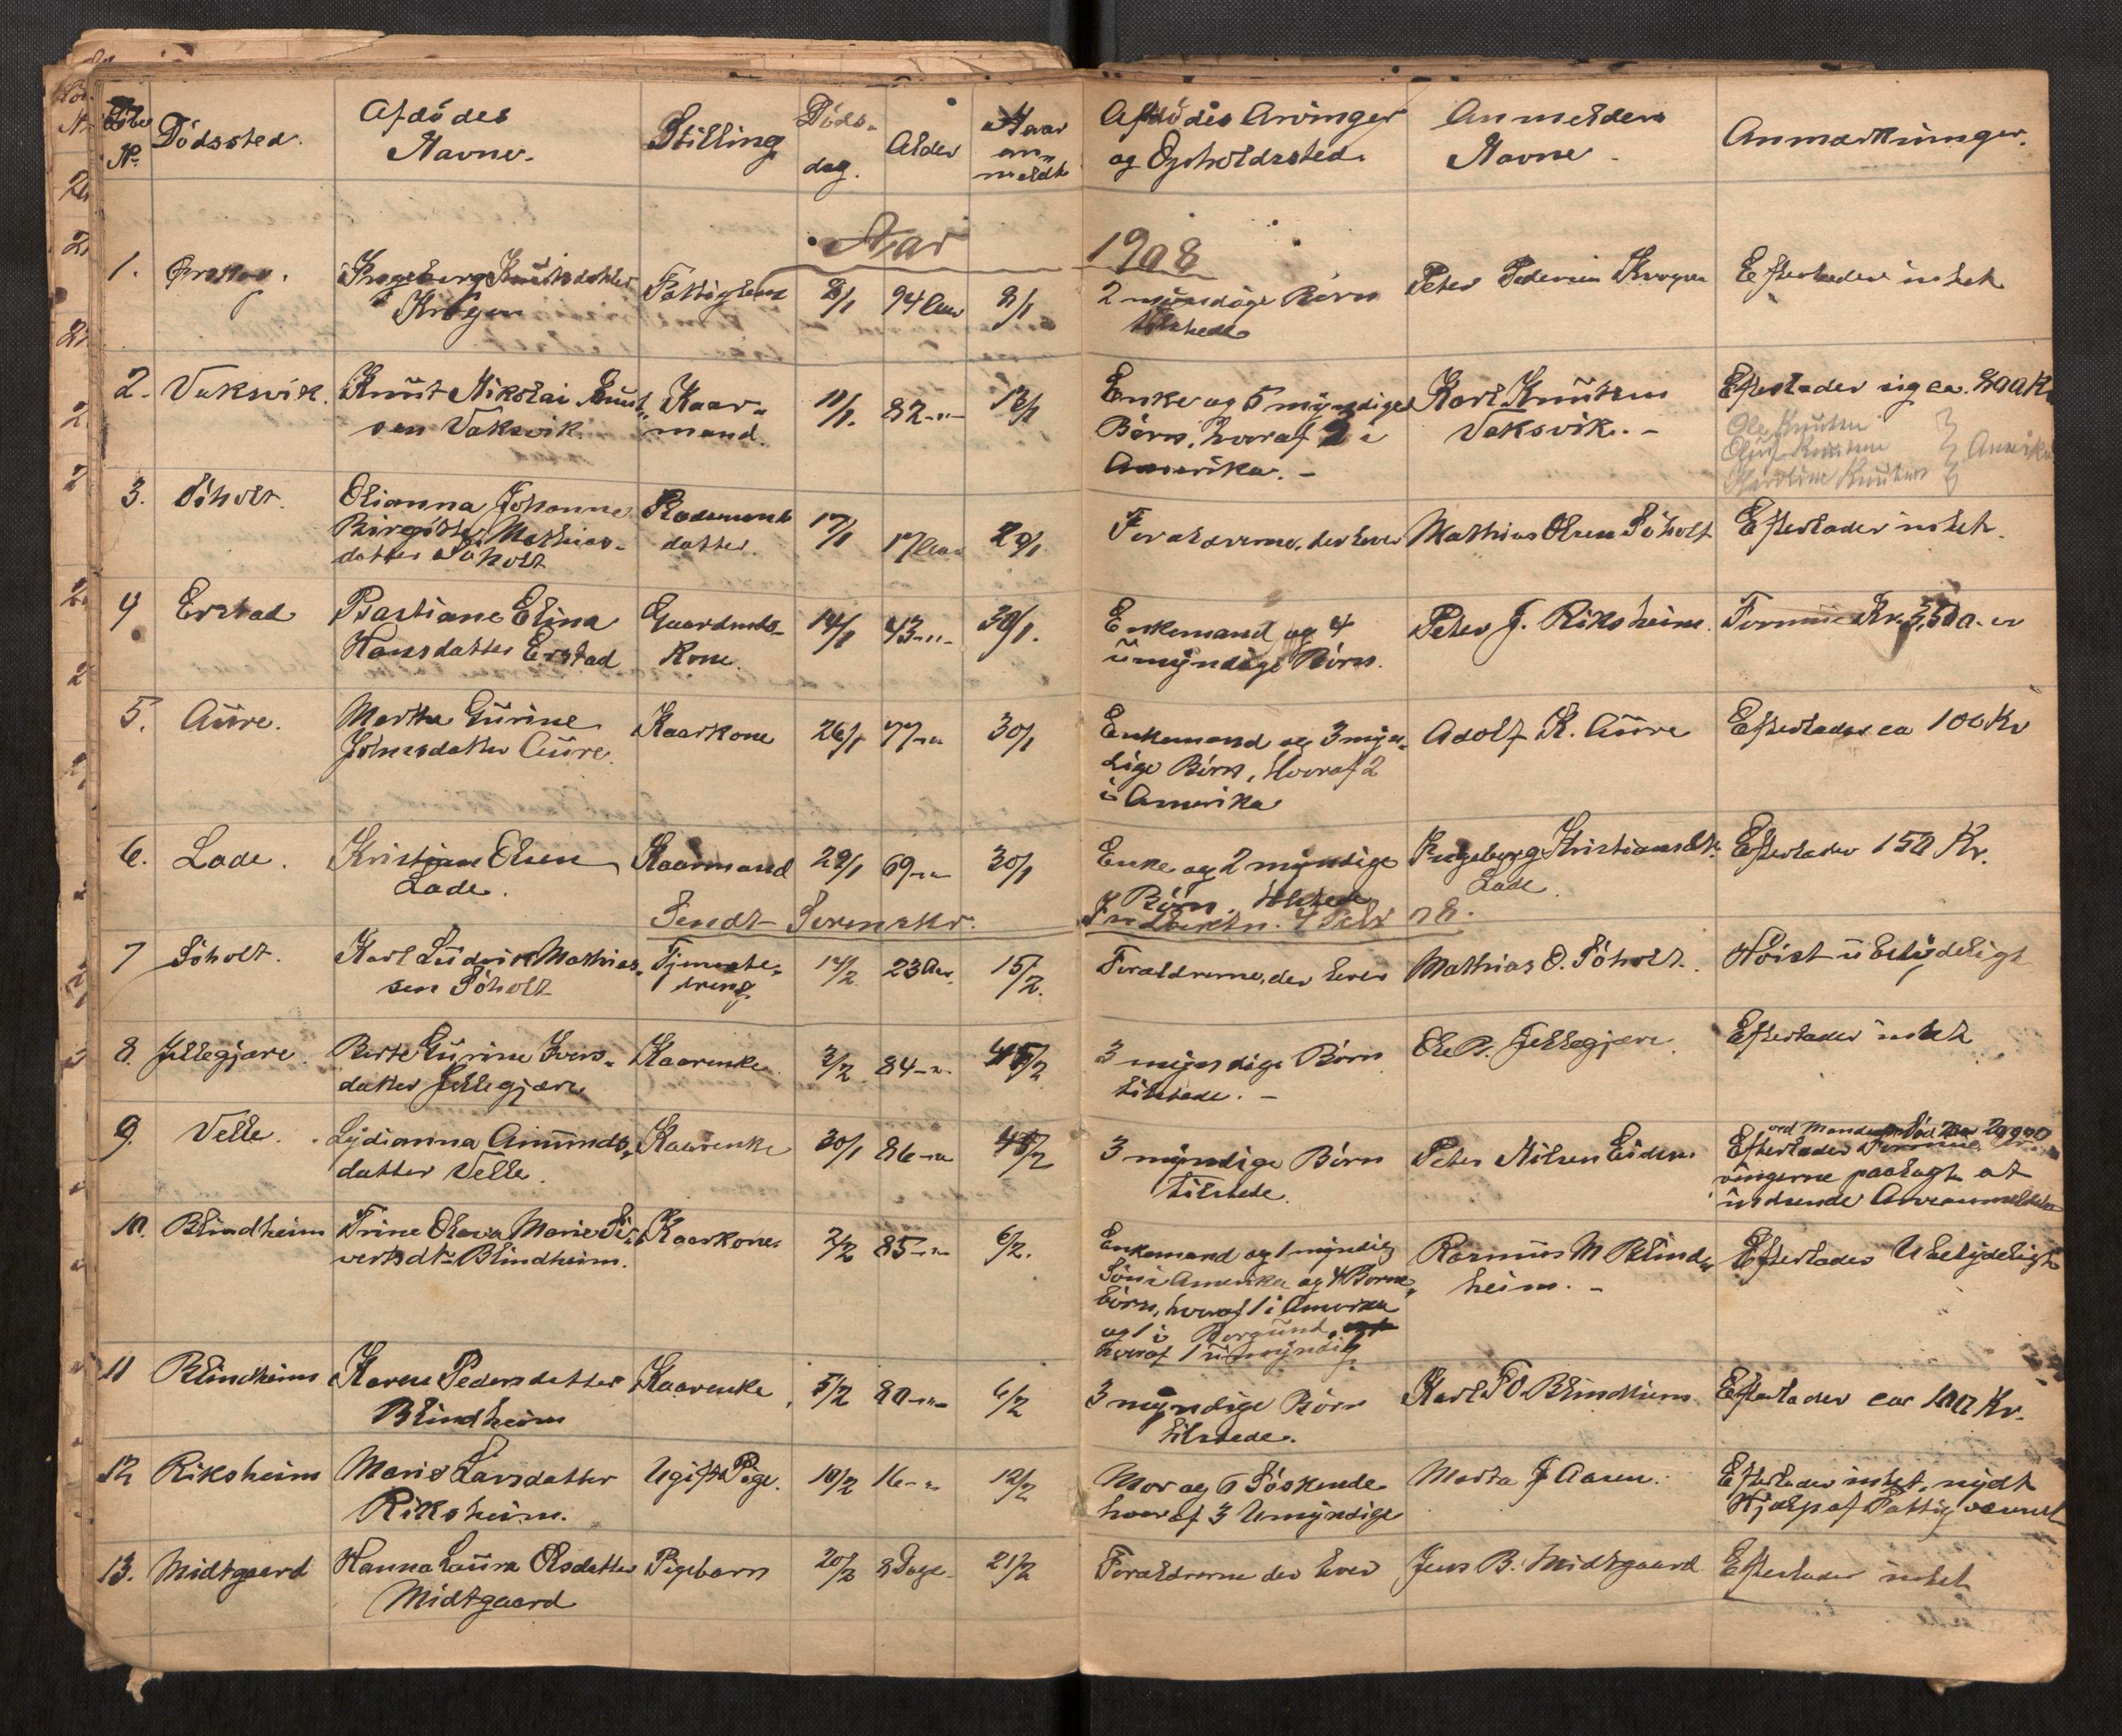 Løbe N°. Dödssted. Afdödes Navne. Stilling Döds- dag. Alder Naar an- meldt Afdödes Arvinger og Opholdssted. Anmelders Navne. Anmærkninger.
Aar 1908
1. Ingeberg Knutsdatter Krogen Fattiglem 8/1 94 Aar 8/1 2 myndige Börn tilstede Peter Pedersen Krogen Efterlader intet
2. Vaksvik. Knut Nikolai Knut- sen Vaksvik Kaar- mand. 11/1. 82 -"- 13/1 Enke og 5 myndige Börn, hvoraf 3 i Amerika. - Karl Knutsen Vaksvik. - Efterlader sig ca. 200 Kr
Ole Knutsen
Knutsen } Amerika
Knutsen
3. Söholt. Olianna Johanne Birgitte Mathias- datter Söholt datter. 17/1 17 Aar 29/1 Forældrerne, der lever Mathias Olsen Söholt Efterlader intet.
4 Erstad Bastiane Elina Hansdatter Erstad Gaardmds- Kone. 14/1 43 -"- 30/1. Enkemand og 4 umyndige Börn. Peter J. Riksheim. Formue Kr. 3,500.-
5. Aure. Marthe Gurine Johnsdatter Aure. Kaarkone 26/1 77 -"- 30/1 Enkemand og 3 myn- dige Börn, hvoraf 2 i Amerika Adolf K. Aure Efterlader ca 100 Kr
6. Lade. Kristian Olsen Lade. Kaarmand 29/1 69 -"- 30/1 Enke og 2 myndige Börn, tilstede Ingeberg Kristiansdtr. Lade. Efterlader 150 Kr.
Sendt Sorenskr. Febr 08.
7 Söholt. Karl Ludvik Mathias- sen Söholt Tjeneste- dreng 14/2 23 Aar. 15/2. Forældrerne, der lever Mathias O. Söholt. Höist ubetydeligt
8. Jellegjære. Berte Gurine Ivers- datter Jellegjære Kaarenke 3/2 84 -"- 3 myndige Börn tilstede. - Ole B. Jellegjære. Efterlader intet
9. Velle. Lydianna Amunds- datter Velle. Kaarenke 30/1 86 -"- 3 myndige Börn tilstede. Peter Nilsen Eidem Efterlader Formue
vingerne paalagt at indsende
10. Blindheim Trine Olava Marie Si- vertsdtr Blindheim. Kaarkone 2/2 85 -"- 6/2. Enkemand og 1 myndig Sön i Amerika og 4 Barne- börn, hvoraf 1 i Amerika og 1 i Borgund, hvoraf 1 umyndig Rasmus M Blind- heim. - Efterlader Ubetydeligt
11 Blindheim Karen Pedersdatter Blindheim Kaarenke 5/2 80 -"- 6/2 3 myndige Börn tilstede. Karl P O. Blindheim Efterlader ca 100 Kr.
12 Riksheim Marie Larsdatter Riksheim. Ugift Pige. 10/2 16 -"- 12/2 Mor og 6 Söskende hvoraf 3 Umyndige Marta J Aasen. Efterlader intet, nydt Hjælp af Fattigvæsnet
13. Midtgaard Hanna Laura Olsdatter Midtgaard Pigebarn 20/2 8 Dage. 21/2 Forældrerne der lever Jens B. Midtgaard Efterlader intet